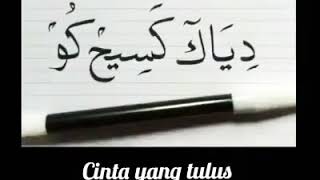 دِيَاكَ كَسِيْحْ كُوْ
Cinta yang tulus